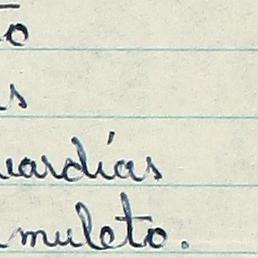 to
as
uardias
muleto.